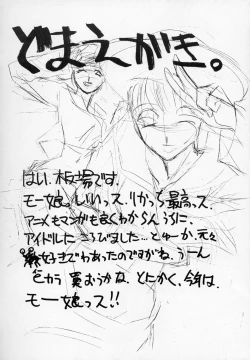 どまえがき。
はい、板場です。
モー娘、いいっス、りかっち最高っス。
アニメもマンガも良くわからんうちに、
アイドルにころびました…とゆーか、元々
好きでわあったのですがね。うーん
ピカラ 買おうかな、とにかく、今年は
モー娘っス!!